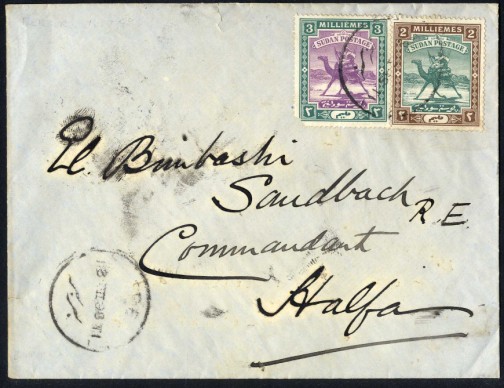 3 MILLIEMES 3
SUDAN POSTAGE
٣ مليم ٣
2 MILLIEMES 2
SUDAN POSTAGE
٢ مليم ٢
El Bimbashi
Sandbach R.E.
Commandant
Halfa